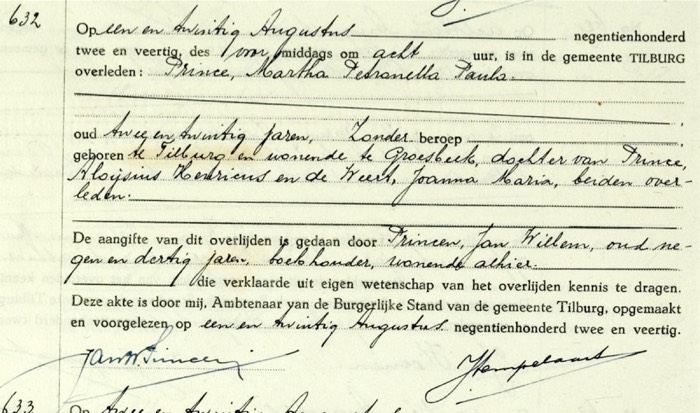 632
Op een en twintig Augustus negentienhonderd
twee en veertig, des voor middags om acht uur, is in de gemeente TILBURG
overleden: Prince, Martha Petronella Paula.
oud twee en twintig jaren, Zonder beroep
geboren te Tilburg en wonende te Groesbeek, dochter van Prince,
Aloÿsius Henricus en de Weert, Joanna Maria, beiden over-
leden.
De aangifte van dit overlijden is gedaan door Princen, Jan Willem, oud ne-
gen en dertig jaren, boekhouder, wonende alhier.
die verklaarde uit eigen wetenschap van het overlijden kennis te dragen.
Deze akte is door mij, Ambtenaar van de Burgerlijke Stand van de gemeente Tilburg, opgemaakt
en voorgelezen op een en twintig Augustus negentienhonderd twee en veertig.
633
Op twee en twintig